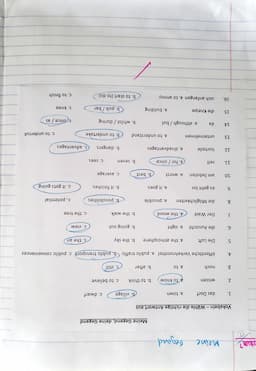 Meine Gegend
Meine Gegend, deine Gegend
Vokabeln – Wähle die richtige Antwort aus
1. das Dorf a. town b. village c. dwarf
2. wissen a. To know b. to think c. to believe
3. noch a. to b. after c. still
4. öffentliche Verkehrsmittel a. public traffic b. public transport c. public conveniences
5. Die Luft a. the atmosphere b. the sky c. the air
6. die Aussicht a. sight b. going out c. view
7. Der Wald a. the wood b. the walk c. the tree
8. die Möglichkeiten a. possible b. possibilities c. potential
9. es geht los a. it goes b. it finishes c. it gets going
10. am besten a. worst b. best c. average
11. seit b. for / since b. seven c. sees
12. Nachteile a. disadvantages b. dangers c. advantages
13. unternehmen a. to understand b. to undertake c. to understand
14. da a. although / but b. whilst / during c. since / as
15. die Kneipe a. building b. pub / bar c. knee
16. sich anfangen a. to annoy b. to start (to) c. to finish